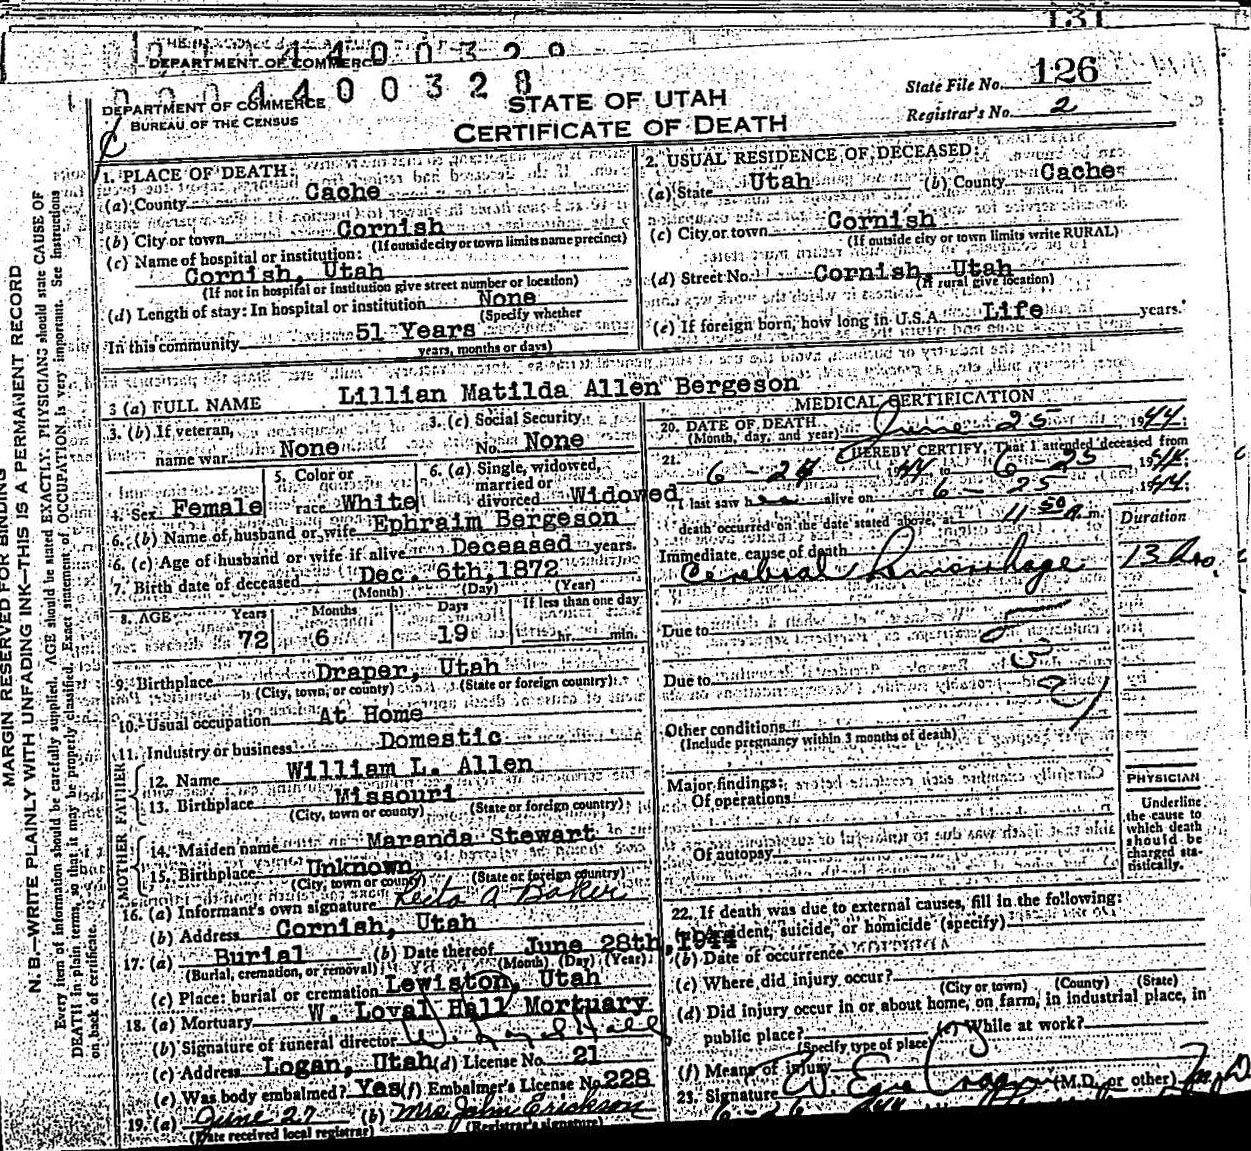 131
DEPARTMENT OF COMMERCE
4 4 0 0 3 2 9
4 4 0 0 3 2 8
DEPARTMENT OF COMMERCE
BUREAU OF THE CENSUS
STATE OF UTAH
CERTIFICATE OF DEATH
State File No. 126
Registrar's No. 2
MARGIN RESERVED FOR BINDING
N. B.—WRITE PLAINLY WITH UNFADING INK—THIS IS A PERMANENT RECORD
Every item of information should be carefully supplied. AGE should be stated EXACTLY. PHYSICIANS should state CAUSE OF
DEATH in plain terms, so that it may be properly classified. Exact statement of OCCUPATION is very important. See instructions
on back of certificate.
1. PLACE OF DEATH:
(a) County Cache
(b) City or town Cornish
(If outside city or town limits name precinct)
(c) Name of hospital or institution:
Cornish, Utah
(If not in hospital or institution give street number or location)
(d) Length of stay: In hospital or institution None
(Specify whether
In this community 51 Years
years, months or days)
2. USUAL RESIDENCE OF DECEASED:
(a) State Utah (b) County Cache
(c) City or town Cornish
(If outside city or town limits write RURAL)
(d) Street No. Cornish, Utah
(If rural give location)
(e) If foreign born, how long in U.S.A. Life years.
3 (a) FULL NAME Lillian Matilda Allen Bergeson
3. (b) If veteran,
name war None
3. (c) Social Security
No. None
4. Sex Female
5. Color or
race White
6. (a) Single, widowed,
married or
divorced Widowed
6. (b) Name of husband or wife Ephraim Bergeson
6. (c) Age of husband or wife if alive Deceased years.
7. Birth date of deceased Dec. 6th, 1872
(Month) (Day) (Year)
8. AGE Years Months Days If less than one day
72 6 19 hr. min.
9. Birthplace Draper, Utah
(City, town, or county) (State or foreign country)
10. Usual occupation At Home
11. Industry or business Domestic
FATHER
12. Name William L. Allen
13. Birthplace Missouri
(City, town or county) (State or foreign country)
MOTHER
14. Maiden name Maranda Stewart
15. Birthplace Unknown
(City, town or county) (State or foreign country)
16. (a) Informant's own signature A Baker
(b) Address Cornish, Utah
17. (a) Burial (b) Date thereof June 28th, 1944
(Burial, cremation, or removal) (Month) (Day) (Year)
(c) Place: burial or cremation Lewiston, Utah
18. (a) Mortuary W. Loyal Hall Mortuary
(b) Signature of funeral director W. Loyal Hall
(c) Address Logan, Utah (d) License No. 21
(e) Was body embalmed? Yes (f) Embalmer's License No. 228
19. (a) June 27 (b) Mrs John Erickson
(Date received local registrar) (Registrar's signature)
MEDICAL CERTIFICATION
20. DATE OF DEATH
(Month, day, and year) June 25 1944
21. I HEREBY CERTIFY, That I attended deceased from
6 - 24 44 to 6 - 25 1944
I last saw her alive on 6 - 25 1944
death occurred on the date stated above, at 11 50 A m.
Duration
Immediate cause of death
Cerebral Hemorrhage 13 hrs.
Due to
Due to
Other conditions
(Include pregnancy within 3 months of death)
Major findings:
Of operations
Of autopsy
PHYSICIAN
Underline
the cause to
which death
should be
charged sta-
tistically.
22. If death was due to external causes, fill in the following:
(a) Accident, suicide, or homicide (specify)
(b) Date of occurrence
(c) Where did injury occur?
(City or town) (County) (State)
(d) Did injury occur in or about home, on farm, in industrial place, in
public place? (e) While at work?
(Specify type of place)
(f) Means of injury
23. Signature (M.D. or other) M D